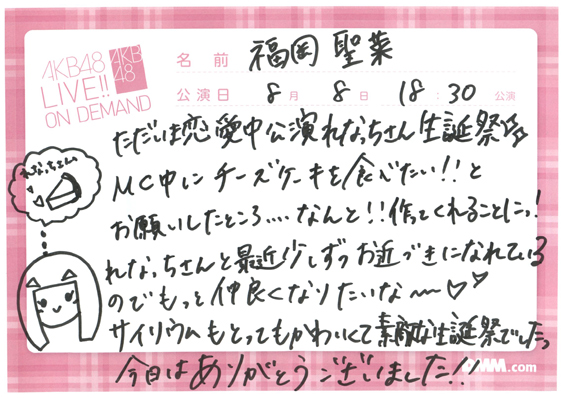 AKB48
LIVE!!
ON DEMAND
AKB
48
名前 福岡 聖菜
公演日 8月 8日 18:30 公演
ただいま恋愛中公演れなっちさん生誕祭
れなっちさん
MC中にチーズケーキを食べたい!!と
お願いしたところ....なんと!!作ってくれることにっ!
れなっちさんと最近少しずつお近づきになれている
のでもっと仲良くなりたいな〜♡♡
サイリウムもとってもかわいくて素敵な生誕祭でしたっ
今日はありがとうございました!!
DMM.com